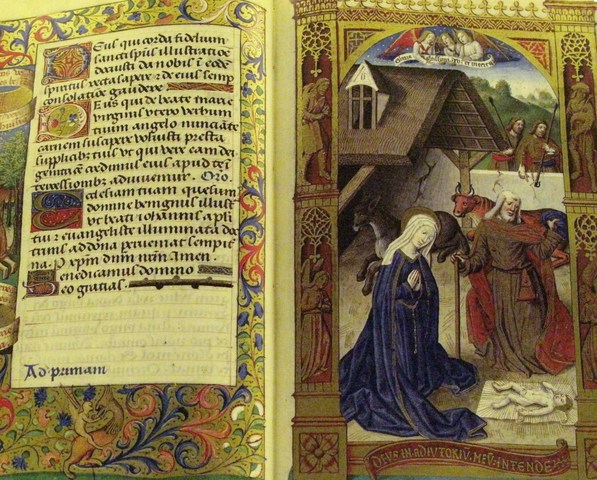 gloria in excelsis deo et in terra
Deus qui corda fidelium
sancti spūs illustratiōe
docuisti da nobis ī eodē
spiritu recta sapere ⁊ de eius semp
consolatiōe gaudere
Deus qui de beate marie
virginis utero verbum
tuum angelo nunciāte
carnem suscipere voluisti p̄sta
supplicib; tuis ut qui vere eam dei
genitricē credimus eius apud te ī
tercessionib; adiuvemur. Oro.
Ecclesiam tuam quesum
domine benignus illust
beati iohannis apli
tui ⁊ euangeliste illuminata doc
trinis ad dona perveniat sempite
na. P xpm dnm nrm Amen
Benedicamus domino
Deo gratias.
Ad primam
DEUS IN ADIUTORIU MEU INTENDE